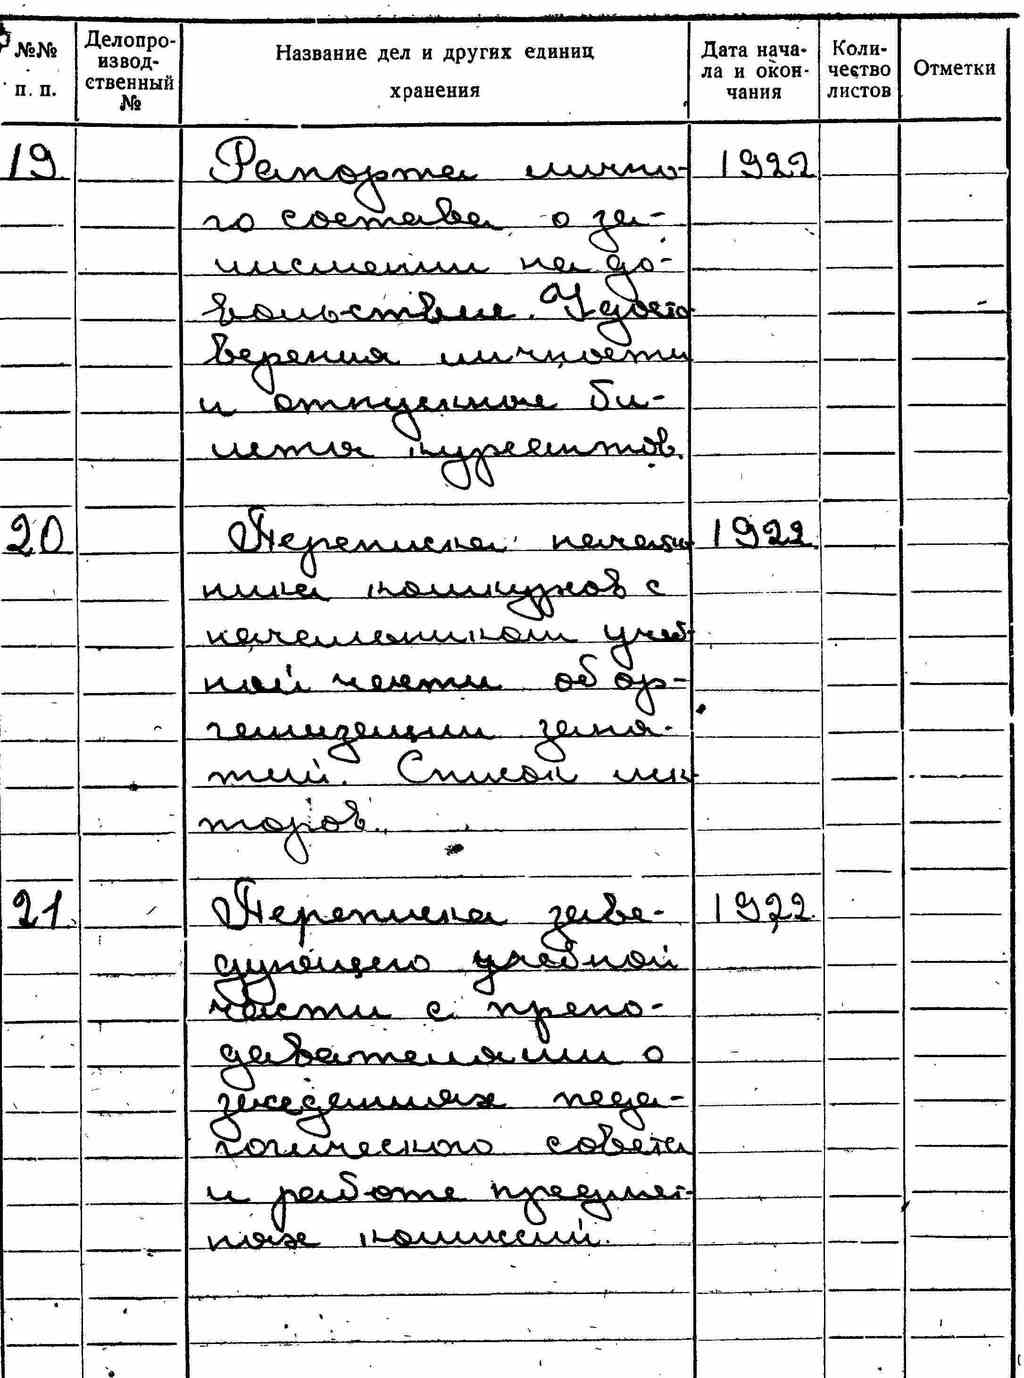 №№ п. п.
Делопроизвод-
ственный
№
Название дел и других единиц
хранения
Дата нача-
ла и окон-
чания
Коли-
чество
листов
Отметки
19. Рапорта лично- 1922
го состава о за-
числении на до-
вольствие. Удосто
верения личности
и отпускные би-
леты курсантов.
20 Переписка началь 1922.
ника комкурсов с
начальником учеб-
ной части об ор-
ганизации заня-
тий. Список лек
торов.
21. Переписка заве- 1922.
дующего учебной
части с препо-
давателями о
заседаниях педа-
гогического совета
и работе предмет-
ных комиссий.